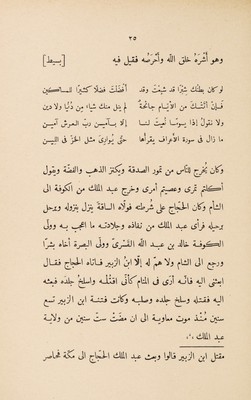 ٢٥
وهو أشره خلق الله وأحرصه فقيل فيه [بسيط]
لو كان بطنك شبرا قد شبعت وقد أفضلت فضلا كثيرا للمساكين
فإن أتتك من الأيام جائحة لم نبك منك على دنيا ولا دين
ولا نقول إذا يوما نُعيت لنا إلا بآمين رب العرش آمين
ما زال في سورة الأعراف يقرأها حتى فؤادي مثل الخز في اللين
وكان يخرج للناس من تمور الصدقة ويكنز الذهب والفضة ويقول
أكلتم تمري وعصيتم أمرى وخرج عبد الملك من الكوفة الى
الشأم وكان الحجاج على شرطته فولاه الساقة ينزل بنزوله ويرحل
برحيله فرأى عبد الملك من نفاذه وجلادته ما اعجب به وولى
الكوفة خالد بن عبد الله القسرى وولى البصرة أخاه بشرا
ورجع الى الشام ولا هم له إلا ابن الزبير فأتاه الحجاج فقال
ابعثنى اليه فانه أرى فى المنام كأنى اقتله واسلخ جلده فبعثه
اليه فقتله وسلخ جلده وصلبه وكانت فتنة ابن الزبير تسع
سنين منذ موت معاوية الى ان مضت ست سنين من ولاية
عبد الملك ،،
مقتل ابن الزبير قالوا وبعث عبد الملك الحجاج الى مكة فحاصر